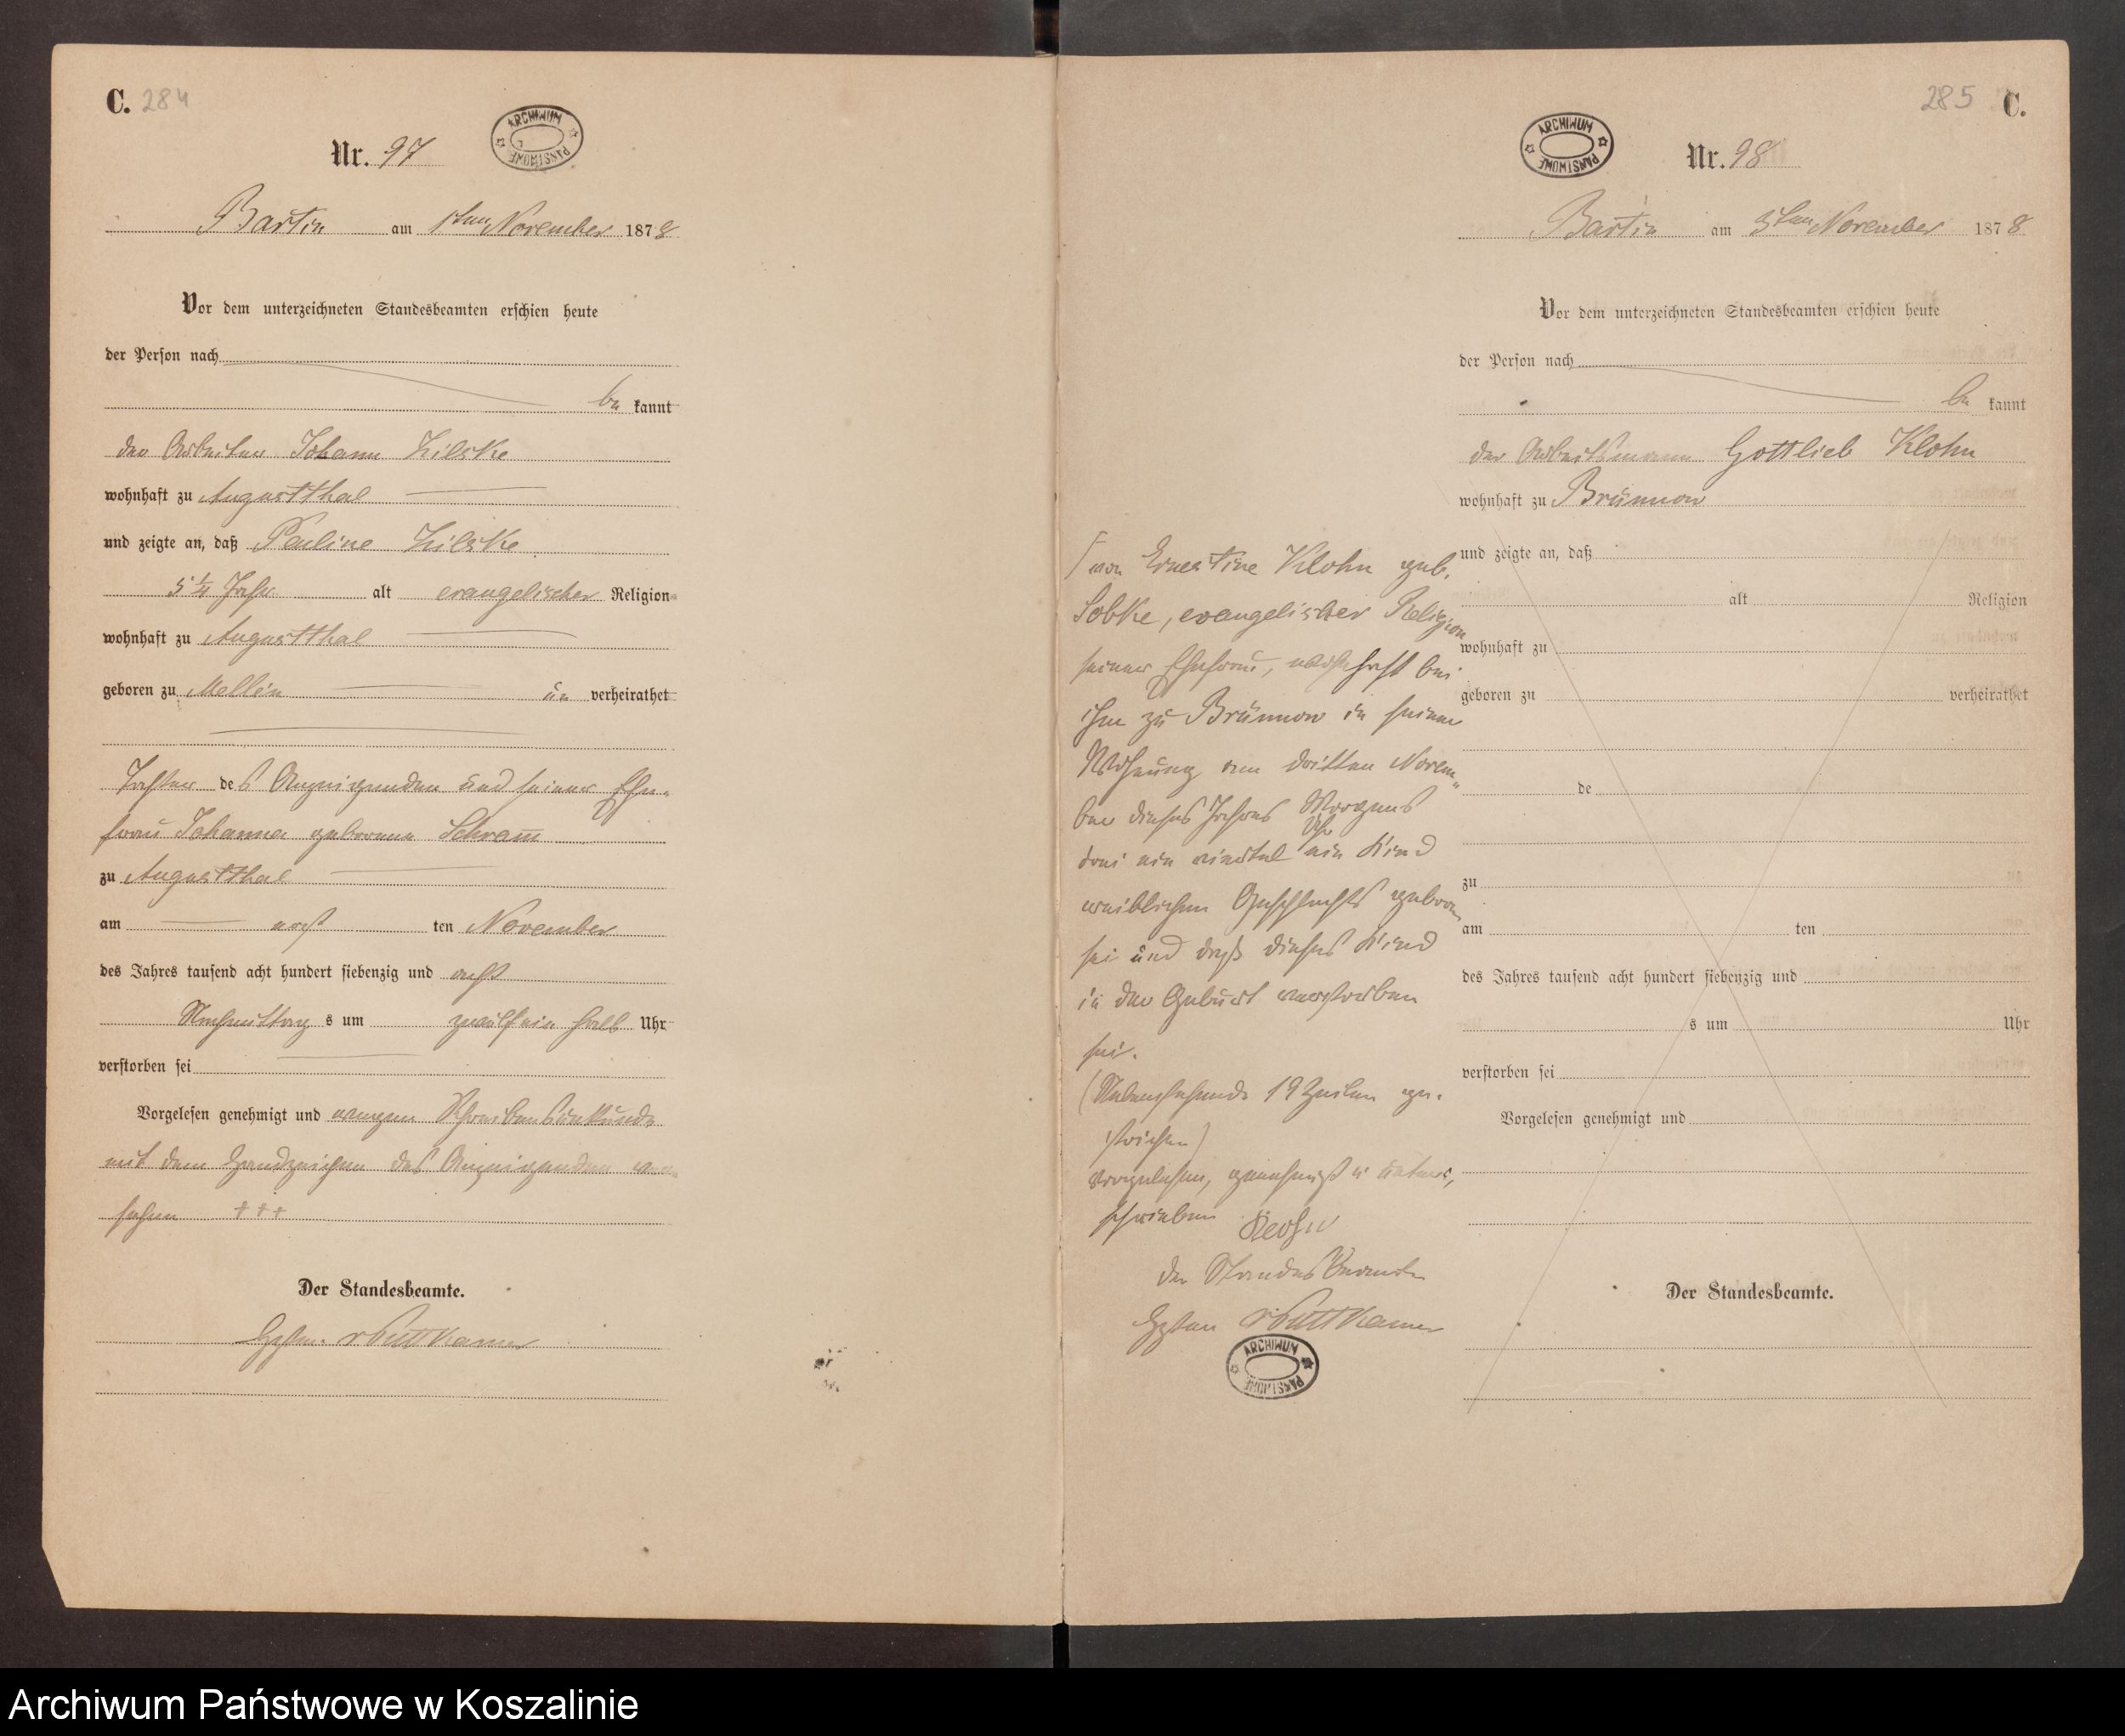 C. 284
Nr. 97
ARCHIWUM PAŃSTWOWE
Bartin am 1ten November 1878
Vor dem unterzeichneten Standesbeamten erschien heute
der Person nach
be kannt
der Arbeiter Johann Zilske
wohnhaft zu Augustthal
und zeigte an, daß Pauline Zilske
5 1/4 Jahr alt evangelischer Religion
wohnhaft zu Augustthal
geboren zu Mellin un verheirathet
Tochter des Anzeigenden und seiner Ehe-
frau Johanna geborene Schram̅
zu Augustthal
am ten November
des Jahres tausend acht hundert siebenzig und acht
Nachmittag s um zwölf ein halb Uhr
verstorben sei
Vorgelesen genehmigt und wegen Schreibensunkunde
mit dem Handzeichen des Anzeigenden ver-
sehen +++
Der Standesbeamte.
v Puttkamer
285 C.
ARCHIWUM PAŃSTWOWE
Nr. 98
Bartin am 3ten November 1878
Vor dem unterzeichneten Standesbeamten erschien heute
der Person nach
be kannt
der Arbeitsmann Gottlieb Klohn
wohnhaft zu Brünnow
und zeigte an, daß
alt Religion
wohnhaft zu
geboren zu verheirathet
de
zu
am ten
des Jahres tausend acht hundert siebenzig und
s um Uhr
verstorben sei
Vorgelesen genehmigt und
Der Standesbeamte.
von Ernestine Klohn geb.
Sobke, evangelischer Religion
seiner Ehefrau, wohnhaft bei
ihm zu Brünnow in seiner
Wohnung am dritten Novem-
ber dieses Jahres Morgens
drei ein viertel Uhr ein Kind
weiblichen Geschlechts geboren
sei und daß dieses Kind
in der Geburt verstorben
sei.
(Nebenstehende 19 Zeilen ge-
strichen)
vorgelesen, genehmigt u unter-
schrieben Klohn
der Standes Beamte
v Puttkamer
ARCHIWUM PAŃSTWOWE
Archiwum Państwowe w Koszalinie